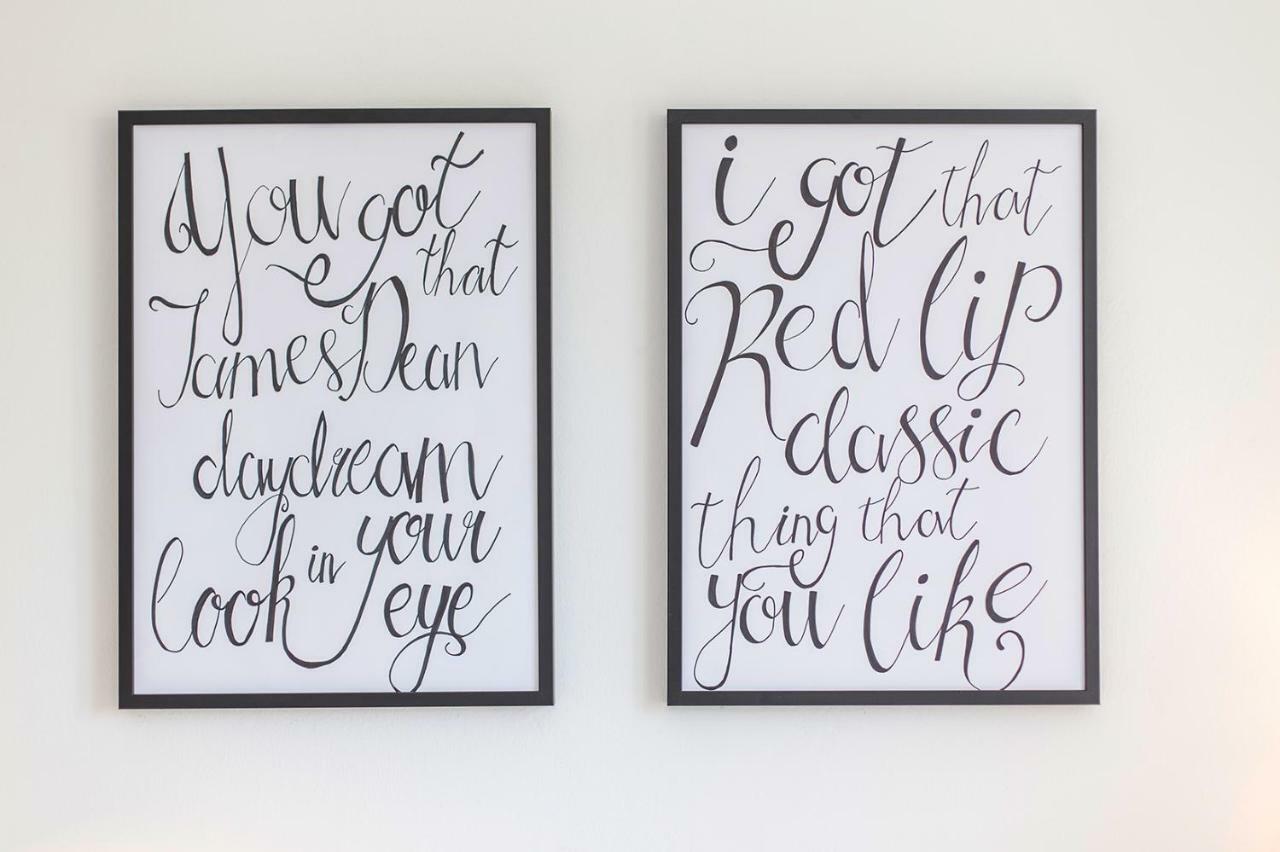 You got
that
James Dean
daydream
look in your
eye
i got that
Red lip
classic
thing that
you like